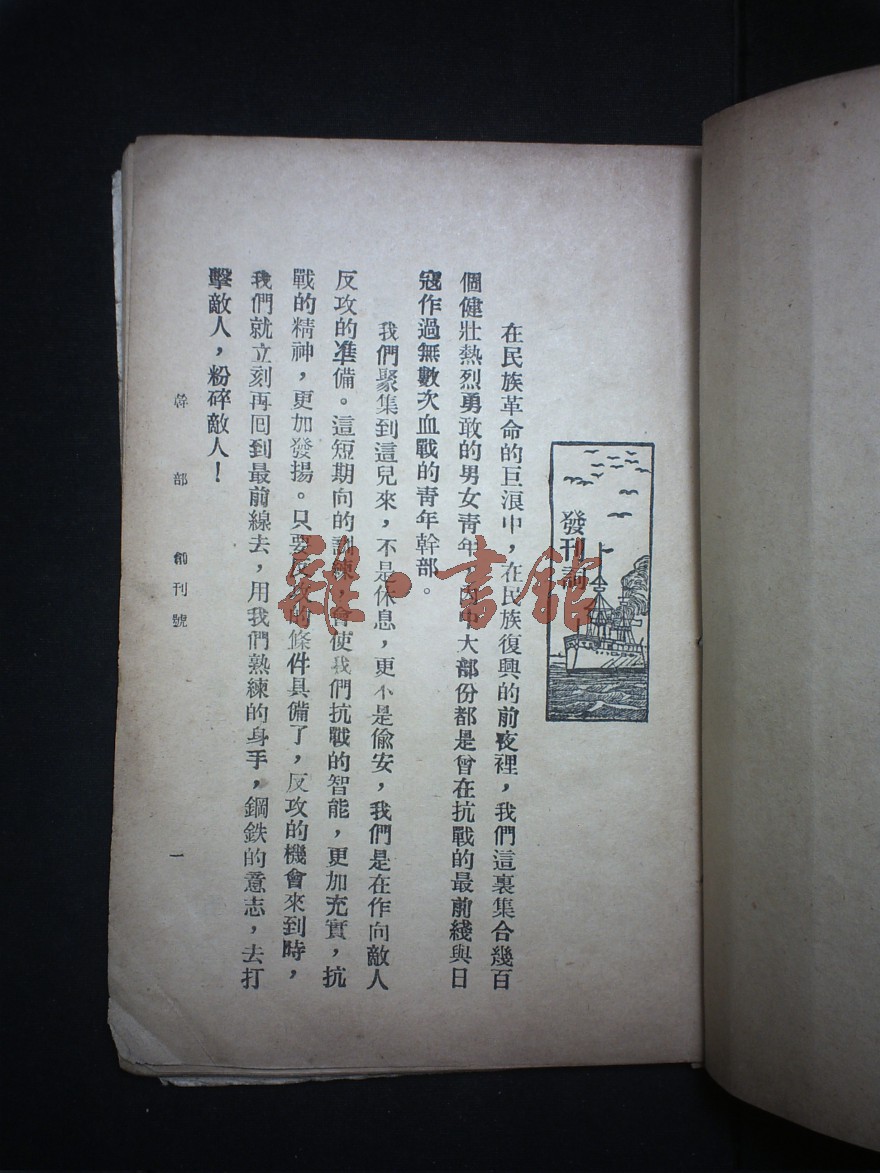 發刊詞
在民族革命的巨浪中，在民族復興的前夜裡，我們這裏集合幾百
個健壯熱烈勇敢的男女青年，內中大部份都是曾在抗戰的最前綫與日
寇作過無數次血戰的青年幹部。
我們聚集到這兒來，不是休息，更不是偸安，我們是在作向敵人
反攻的准備。這短期向的訓練，會使我們抗戰的智能，更加充實，抗
戰的精神，更加發揚。只要反攻的條件具備了，反攻的機會來到時，
我們就立刻再回到最前線去，用我們熟練的身手，鋼鉄的意志，去打
擊敵人，粉碎敵人！
幹部 創刊號 一
雜·書館